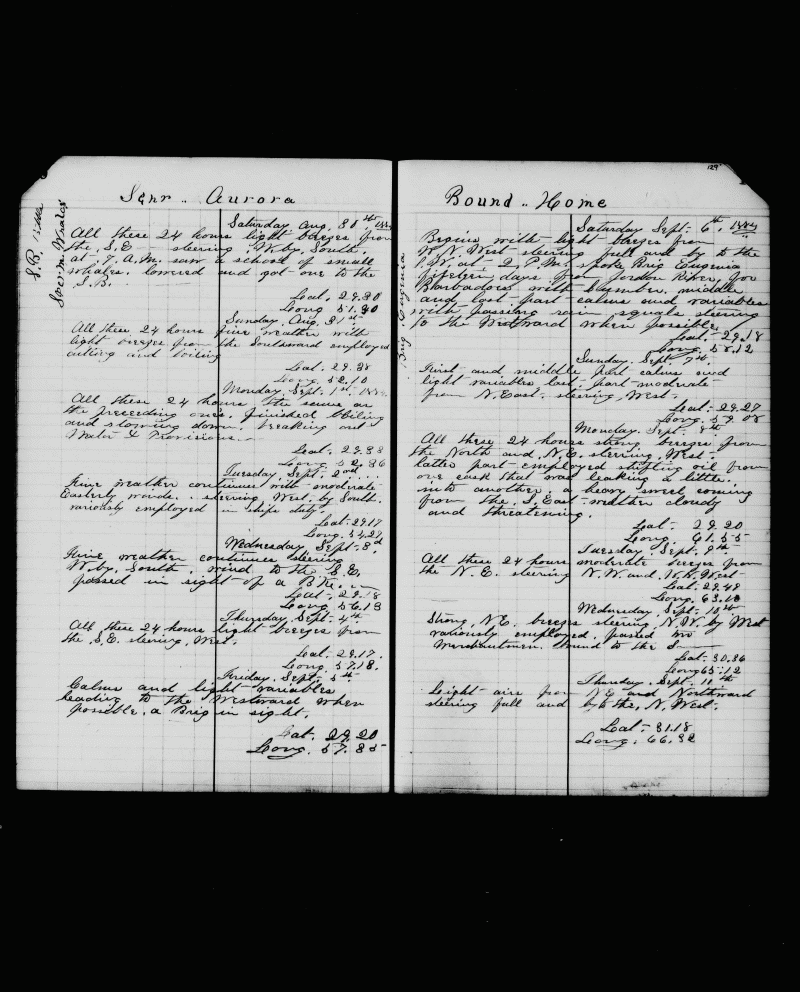 Schr. Aurora
Saturday Aug. 30th, 188
All these 24 hours light breezes from
the S.E - steering W. by South.
at 7 A.M. saw a school of small
whales. lowered and got one to the
S.B.
Lat. 29.30
Long 51.30
Sunday Aug. 31st
All these 24 hours fine weather with
light breezes from the Southward employed
cutting and boiling
Lat. 29.38
Long 52.10
Monday. Sept. 1st
All these 24 hours the same as
the preceeding ones. finished Boiling
and stowing down. breaking out
Water & Provisions.
Lat. 29.33
Long 52.36
Tuesday Sept. 2nd
Fine weather continues with moderate
Easterly winds. steering West. by South.
variously employed in ships duty
Lat 29.17
Long. 54.27
Wednesday. Sept. 3d
Fine weather continues steering
W. by, South. wind to the S.E.
passed in sight of a Bk.
Lat. 29.18
Long 56.13
Thursday. Sept. 4th
All these 24 hours light breezes from
the S.E. steering West.
Lat. 29.17.
Long. 57.18.
Friday. Sept. 5th
Calms and light variables
heading to the Westward when
possible. a Brig in sight.
Lat. 29.20
Long. 57.35
S.B.
Sperm Whales
129
Bound Home
Saturday Sept. 6th, 1884
Begins with light breezes from
N. West steering full and by to the
at 2 P.M. spoke Brig Eugenia
fifteen days from River, for
Barbadoes with lumber. middle
and last part calms and variables
with passing rain squals steering
to the Westward when possible.
Lat. 29.18
Long. 58.12
Sunday Sept. 7th
First and middle part calms and
light variables last part moderate
from N. East. steering West.
Lat. 29.27
Long 59.08
Monday. Sept. 8th
All these 24 hours strong breezes from
the North and N.E. steering West.
latter part employed shifting oil from
one cask that was leaking a little.
into another. a heavy swell coming
from the S. East weather cloudy
and threatening.
Lat. 29.20
Long. 61.55
Tuesday. Sept. 9th
All these 24 hours moderate breezes from
the N.E. steering N.W. and W.N. West
Lat. 29.48
Long. 63.13
Wednesday. Sept. 10th
Strong N.E. breezes steering N.W. by West
variously employed. passed two
Merchantmen. bound to the S
Lat. 30.36
Long 65.12
Thursday. Sept. 11th
Light airs from NE and Northward
steering full and by to the N. West.
Lat. 31.18
Long. 66.32
Brig Eugenia